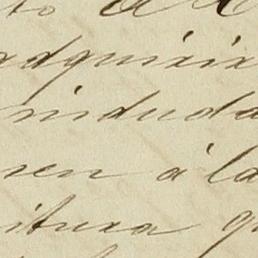 to
adquirir
induda
ren á la
itura q